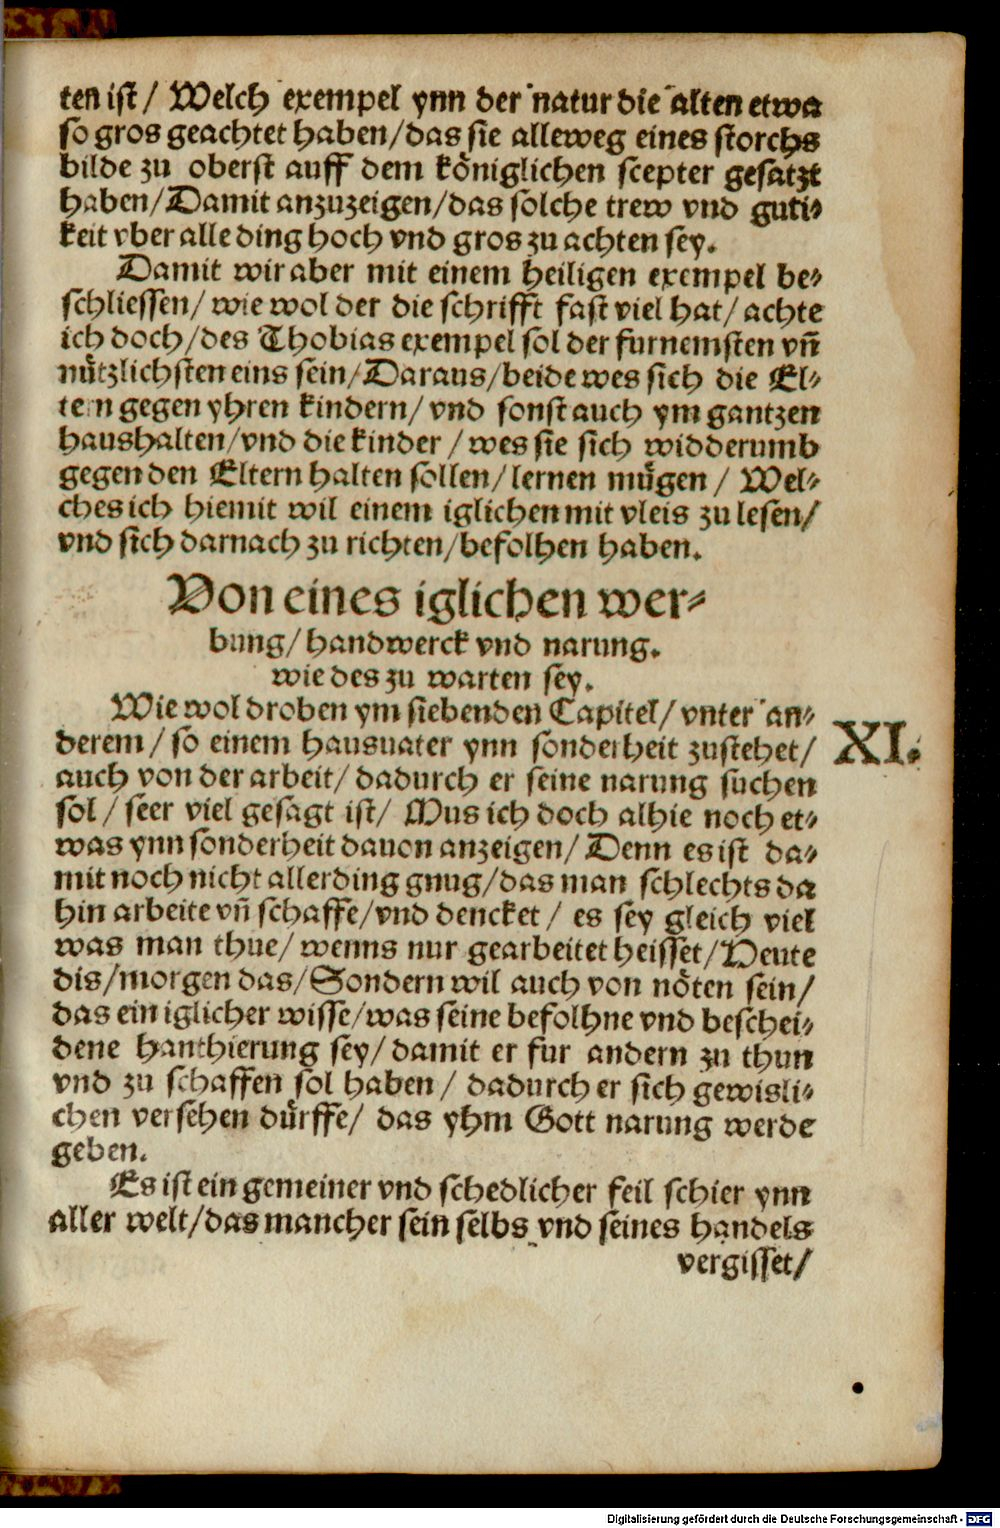 ten ist/ Welch exempel ynn der natur die alten etwa
so gros geachtet haben/das sie alleweg eines storchs
bilde zu oberst auff dem königlichen scepter gesatzt
haben/Damit anzuzeigen/das solche trew vnd guti⸗
keit vber alle ding hoch vnd gros zu achten sey.
Damit wir aber mit einem heiligen exempel be⸗
schliessen/ wie wol der die schrifft fast viel hat/ achte
ich doch/des Thobias exempel sol der furnemsten vñ
nützlichsten eins sein/Daraus/beide wes sich die El⸗
tern gegen yhren kindern/ vnd sonst auch ym gantzen
haushalten/vnd die kinder/wes sie sich widderumb
gegen den Eltern halten sollen/lernen mügen/ Wel⸗
ches ich hiemit wil einem iglichen mit vleis zu lesen/
vnd sich darnach zu richten/befolhen haben.
Von eines iglichen wer⸗
bung/handwerck vnd narung.
wie des zu warten sey.
Wie wol droben ym siebenden Capitel/ vnter an⸗
derem/ so einem hausuater ynn sonderheit zustehet/
XI.
auch von der arbeit/ dadurch er seine narung suchen
sol/ seer viel gesagt ist/ Mus ich doch alhie noch et⸗
was ynn sonderheit dauon anzeigen/Denn es ist da⸗
mit noch nicht allerding gnug/das man schlechts da
hin arbeite vñ schaffe/vnd dencket/ es sey gleich viel
was man thue/ wenns nur gearbeitet heisset/Heute
dis/morgen das/Sondern wil auch von nöten sein/
das ein iglicher wisse/was seine befolhne vnd beschei⸗
dene hanthierung sey/damit er fur andern zu thun
vnd zu schaffen sol haben/ dadurch er sich gewisli⸗
chen versehen dürffe/ das yhm Gott narung werde
geben.
Es ist ein gemeiner vnd schedlicher feil schier ynn
aller welt/das mancher sein selbs vnd seines handels
vergisset/
Digitalisierung gefördert durch die Deutsche Forschungsgemeinschaft - DFG